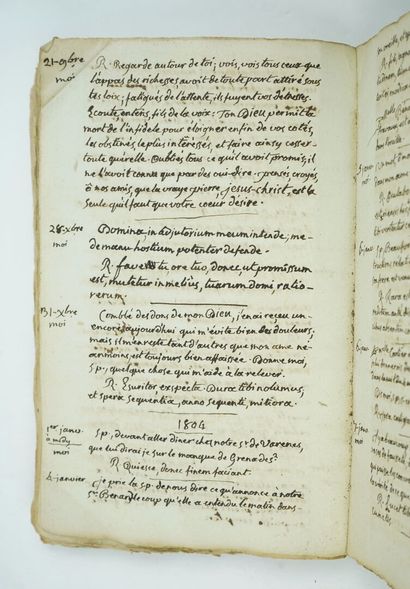 21-9bre
moi
R. Regarde autour de toi; vois, vois tous ceux que
l'appas des richesses avoit de toute part attiré sous
tes loix; fatigués de l'attente, ils fuyent vos détresses.
Ecoute, entens, fils de la voix: Ton DIEU permit la
mort de l'infidele pour éloigner enfin de vos cotés,
les obstinés, le plus intéressés, et faire ainsy cesser
toute querelle. Oublies tous ce qu'il avoit promis; il
ne l'avoit connu que par des oui-dire. Penses, croyés,
ô nos amis, que la vraye pierre, jesus-christ, est la
seule qu'il faut que votre coeur désire.
28-xbre
moi
Domine in adjutorium meum intende; me
de manu hostium potenter defende.
R. fave ore tuo, donec, ut promissum
est, mutetur in melius, tuarum domi, ratio
rerum.
31-xbre
moi
Comblé des dons de mon DIEU, j'en ai reçu un
encore aujourdhui qui m'évite bien des douleurs,
mais il m'en reste tant d'autres que mon ame ne-
anmoins est toujours bien affaissée. Donne moi,
s.p., quelque chose qui m'aide à la relever.
R. Esuritor exspecta. Dura tibi nolumus,
et spera sequentia, anno sequenti, mitiora.
1804
1er janv.
à midy
moi
s.p., devant aller diner chez notre sr. de Varenes,
que lui dirai je sur le manque de Grenades?
R. Quiesce, donec finem faciant.
4-janvier
je prie la s.p. de nous dire ce qu'annonce à notre
sr. Benard le coup qu'elle a entendu le matin dans